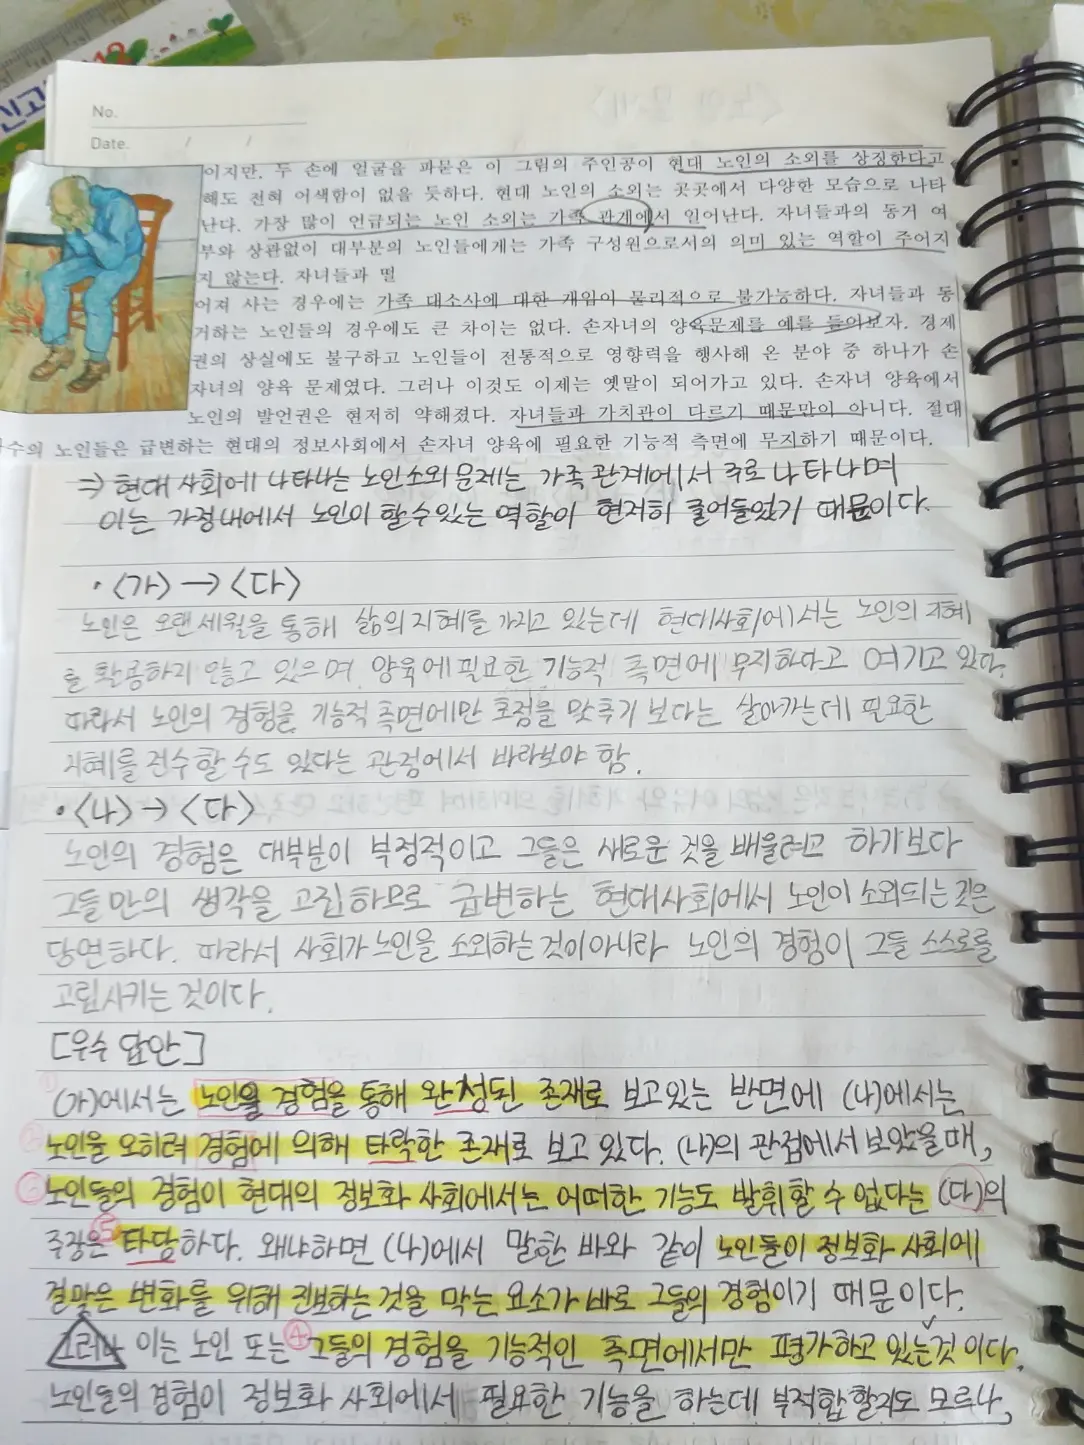 신고
No.
Date. / /
이지만, 두 손에 얼굴을 파묻은 이 그림의 주인공이 현대 노인의 소외를 상징한다고
해도 전혀 어색함이 없을 듯하다. 현대 노인의 소외는 곳곳에서 다양한 모습으로 나타
난다. 가장 많이 언급되는 노인 소외는 가족 관계에서 일어난다. 자녀들과의 동거 여
부와 상관없이 대부분의 노인들에게는 가족 구성원으로서의 의미 있는 역할이 주어지
지 않는다. 자녀들과 떨
어져 사는 경우에는 가족 대소사에 대한 개입이 물리적으로 불가능하다. 자녀들과 동
거하는 노인들의 경우에도 큰 차이는 없다. 손자녀의 양육문제를 예를 들어보자. 경제
권의 상실에도 불구하고 노인들이 전통적으로 영향력을 행사해 온 분야 중 하나가 손
자녀의 양육 문제였다. 그러나 이것도 이제는 옛말이 되어가고 있다. 손자녀 양육에서
노인의 발언권은 현저히 약해졌다. 자녀들과 가치관이 다르기 때문만이 아니다. 절대
다수의 노인들은 급변하는 현대의 정보사회에서 손자녀 양육에 필요한 기능적 측면에 무지하기 때문이다.
⇒ 현대 사회에 나타나는 노인소외 문제는 가족 관계에서 주로 나타나며
이는 가정내에서 노인이 할 수 있는 역할이 현저히 줄어들었기 때문이다.
· <가> → <다>
노인은 오랜 세월을 통해 삶의 지혜를 가지고 있는데 현대사회에서는 노인의 지혜
를 활용하지 않고 있으며 양육에 필요한 기능적 측면에 무지하다고 여기고 있다.
따라서 노인의 경험을 기능적 측면에만 초점을 맞추기 보다는 살아가는데 필요한
지혜를 전수할 수도 있다는 관점에서 바라보아야 함.
· <나> → <다>
노인의 경험은 대부분이 부정적이고 그들은 새로운 것을 배울려고 하기보다
그들만의 생각을 고집하므로 급변하는 현대사회에서 노인이 소외되는 것은
당연하다. 따라서 사회가 노인을 소외하는 것이 아니라 노인의 경험이 그들 스스로를
고립시키는 것이다.
[우수 답안]
① (가)에서는 노인을 경험을 통해 완성된 존재로 보고있는 반면에 (나)에서는
② 노인을 오히려 경험에 의해 타락한 존재로 보고 있다. (나)의 관점에서 보았을 때,
③ 노인들의 경험이 현대의 정보화 사회에서는 어떠한 기능도 발휘할 수 없다는 (다)의
주장은 ⑤ 타당하다. 왜냐하면 (나)에서 말한 바와 같이 노인들이 정보화 사회에
걸맞은 변화를 위해 진보하는 것을 막는 요소가 바로 그들의 경험이기 때문이다.
그러나 이는 노인 또는 ④ 그들의 경험을 기능적인 측면에서만 평가하고 있는 것이다.
노인들의 경험이 정보화 사회에서 필요한 기능을 하는데 부적합할지도 모르나,